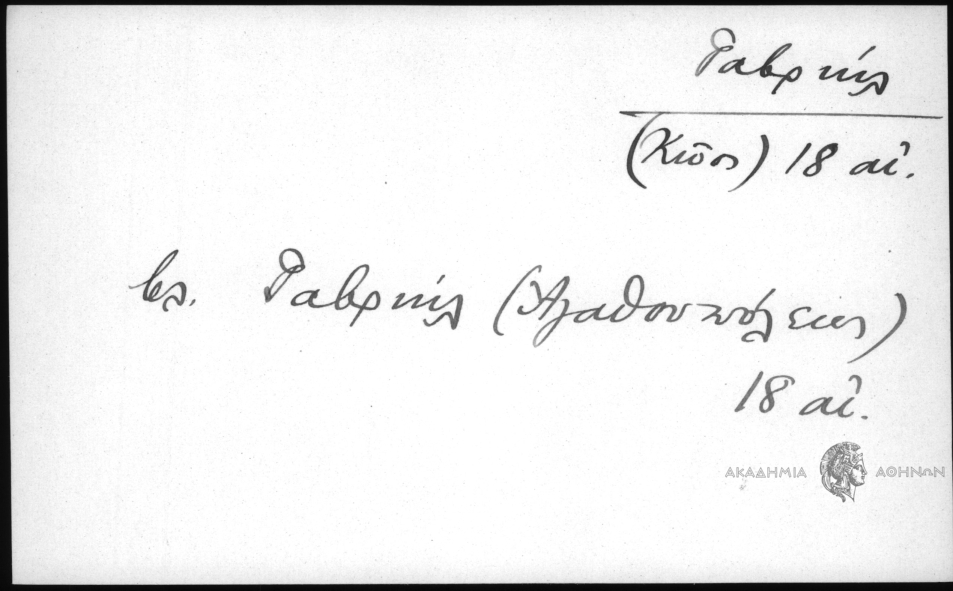 Γαβριήλ
(Κίος) 18 αἰ.
βλ. Γαβριήλ (Ἀγαθουπόλεως)
18 αἰ.
ΑΚΑΔΗΜΙΑ ΑΘΗΝΩΝ